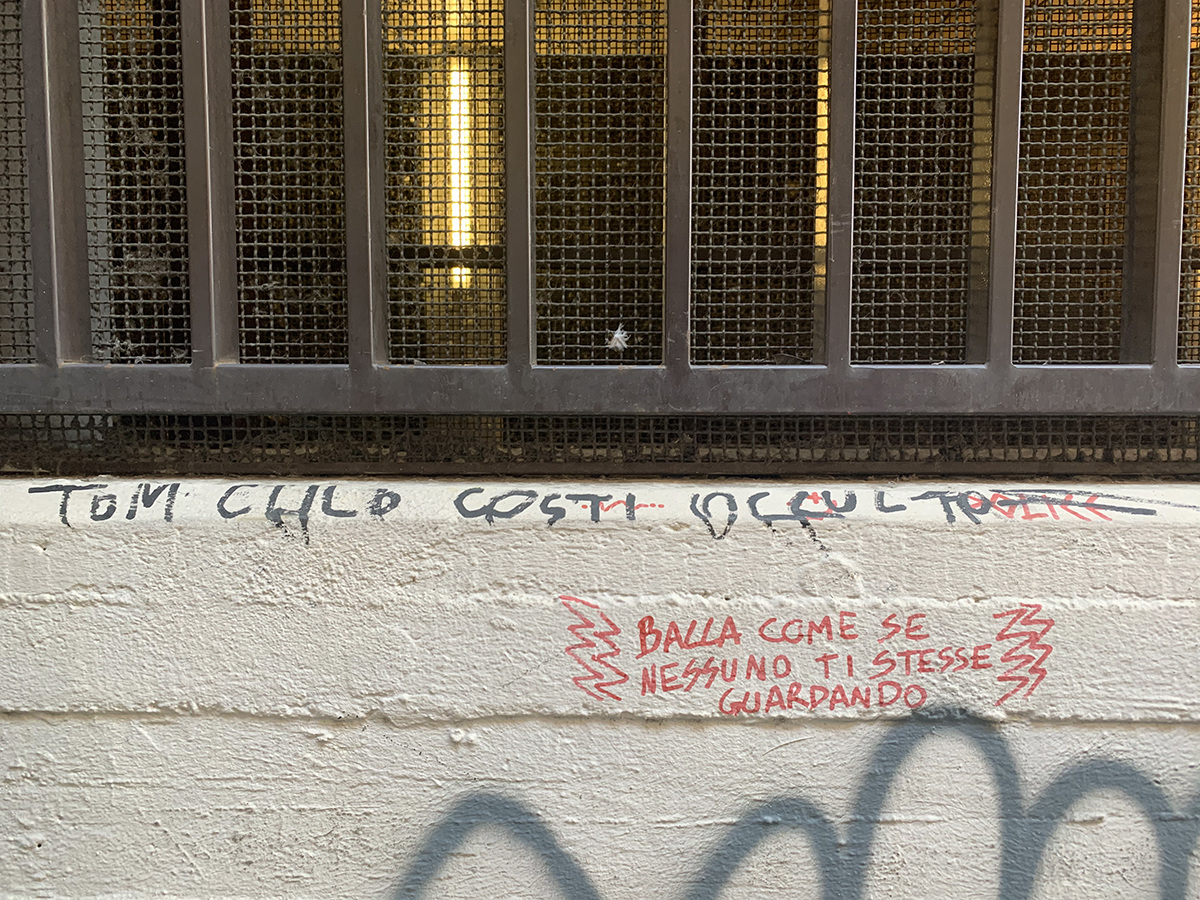 TOM CULO COSTI OCCULTO
BALLA COME SE
NESSUNO TI STESSE
GUARDANDO